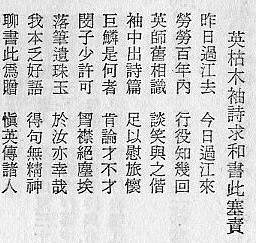 英枯木袖詩求和書此塞責
昨日過江去　今日過江來
勞勞百年內　行役知幾回
英師舊相識　談笑與之偕
袖中出詩篇　足以慰旅懷
巨鱗是何者　肯論才不才
閔子少許可　胷襟絕塵埃
落筆遺珠玉　於汝亦幸哉
我本乏好語　得句無精神
聊書此爲贈　愼英傳諸人